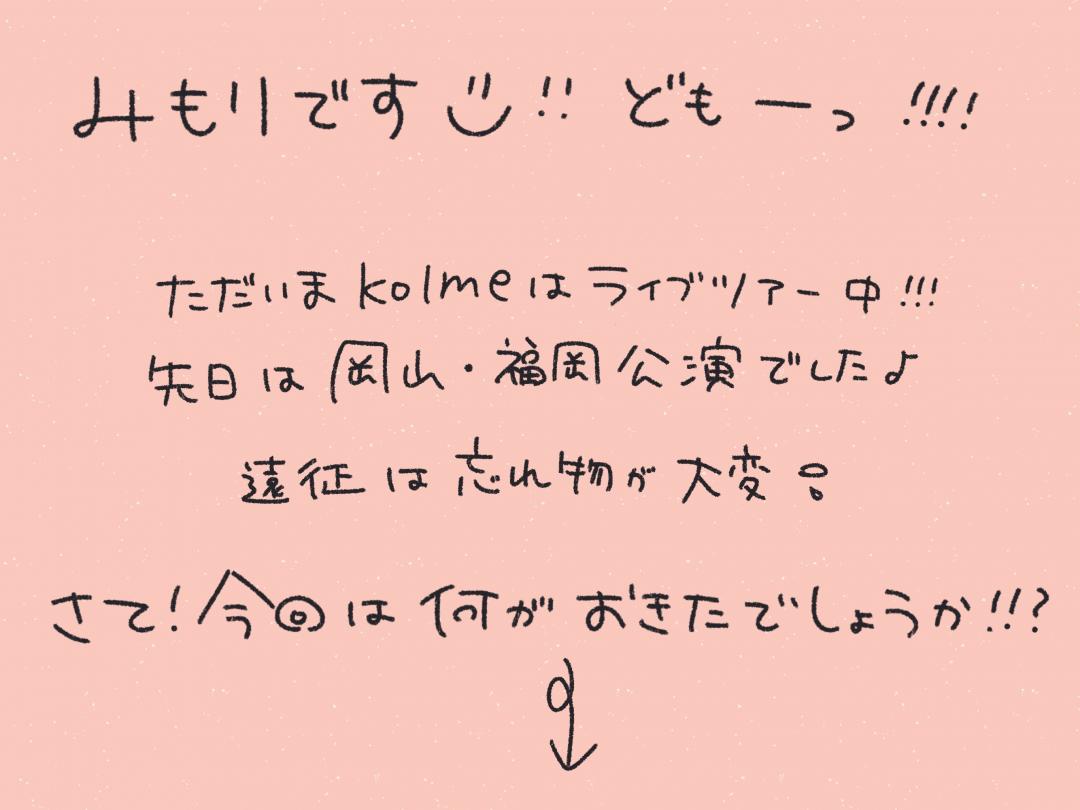 みもりです!! どもーっ!!!!
ただいまkolmeはライブツアー中!!!
先日は岡山・福岡公演でした♪
遠征は忘れ物が大変!
さて!今回は何がおきたでしょうか!!?